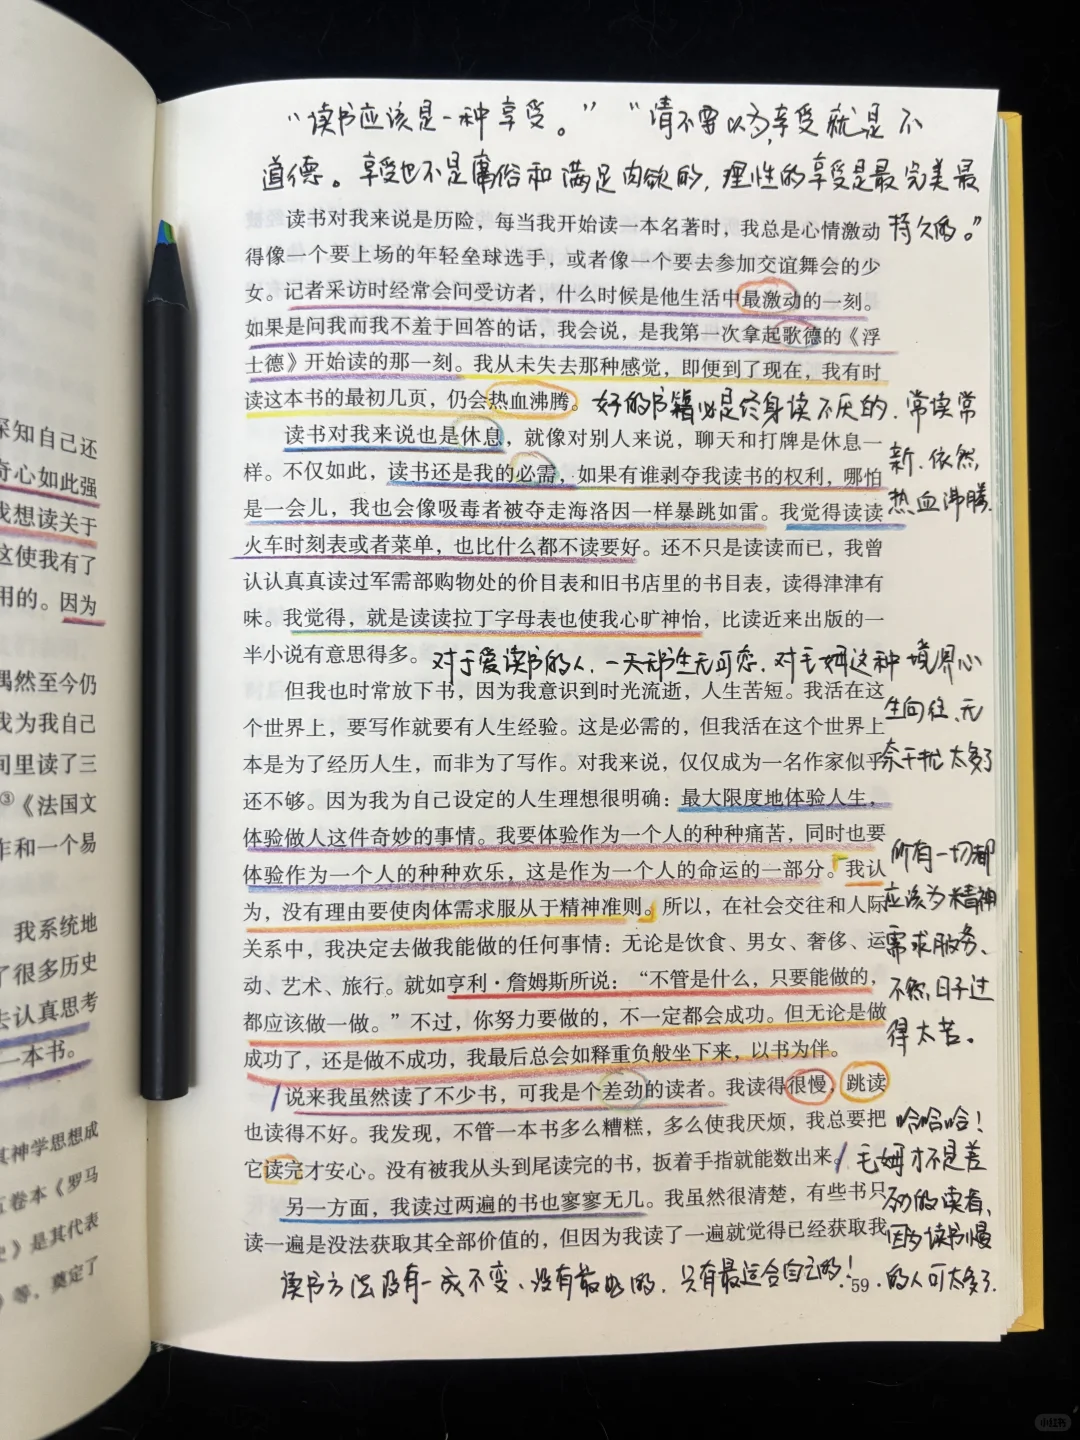 深知自己还
奇心如此强
我想读关于
这使我有了
用的。因为
偶然至今仍
我为我自己
间里读了三
③《法国文
作和一个易
我系统地
了很多历史
去认真思考
一本书。
其神学思想成
五卷本《罗马
史》是其代表
》等，奠定了
“读书应该是一种享受。”“请不要以为享受就是不
道德。享受也不是庸俗和满足肉欲的，理性的享受是最完美最
持久的。”
读书对我来说是历险，每当我开始读一本名著时，我总是心情激动
得像一个要上场的年轻垒球选手，或者像一个要去参加交谊舞会的少
女。记者采访时经常会问受访者，什么时候是他生活中最激动的一刻。
如果是问我而我不羞于回答的话，我会说，是我第一次拿起歌德的《浮
士德》开始读的那一刻。我从未失去那种感觉，即便到了现在，我有时
读这本书的最初几页，仍会热血沸腾。
好的书籍必是终身读不厌的，常读常
新，依然
热血沸腾。
读书对我来说也是休息，就像对别人来说，聊天和打牌是休息一
样。不仅如此，读书还是我的必需，如果有谁剥夺我读书的权利，哪怕
是一会儿，我也会像吸毒者被夺走海洛因一样暴跳如雷。我觉得读读
火车时刻表或者菜单，也比什么都不读要好。还不只是读读而已，我曾
认认真真读过军需部购物处的价目表和旧书店里的书目表，读得津津有
味。我觉得，就是读读拉丁字母表也使我心旷神怡，比读近来出版的一
半小说有意思得多。
对于爱读书的人，一天无书生无可恋，对毛姆这种境界心
生向往，无
奈干扰太多了
但我也时常放下书，因为我意识到时光流逝，人生苦短。我活在这
个世界上，要写作就要有人生经验。这是必需的，但我活在这个世界上
本是为了经历人生，而非为了写作。对我来说，仅仅成为一名作家似乎
还不够。因为我为自己设定的人生理想很明确：最大限度地体验人生，
体验做人这件奇妙的事情。我要体验作为一个人的种种痛苦，同时也要
体验作为一个人的种种欢乐，这是作为一个人的命运的一部分。我认
为，没有理由要使肉体需求服从于精神准则。所以，在社会交往和人际
关系中，我决定去做我能做的任何事情：无论是饮食、男女、奢侈、运
动、艺术、旅行。就如亨利·詹姆斯所说：“不管是什么，只要能做的，
都应该做一做。”不过，你努力要做的，不一定都会成功。但无论是做
成功了，还是做不成功，我最后总会如释重负般坐下来，以书为伴。
所有一切都
应该为精神
需求服务，
不然，日子过
得太苦。
说来我虽然读了不少书，可我是个差劲的读者。我读得很慢，跳读
也读得不好。我发现，不管一本书多么糟糕，多么使我厌烦，我总要把
它读完才安心。没有被我从头到尾读完的书，扳着手指就能数出来。
另一方面，我读过两遍的书也寥寥无几。我虽然很清楚，有些书只
读一遍是没法获取其全部价值的，但因为我读了一遍就觉得已经获取我
哈哈哈！
毛姆才不是差
劲的读者，
因为读书慢
的人可太多了。
读书方法没有一成不变，没有最好的，只有最适合自己的！
59
小红书